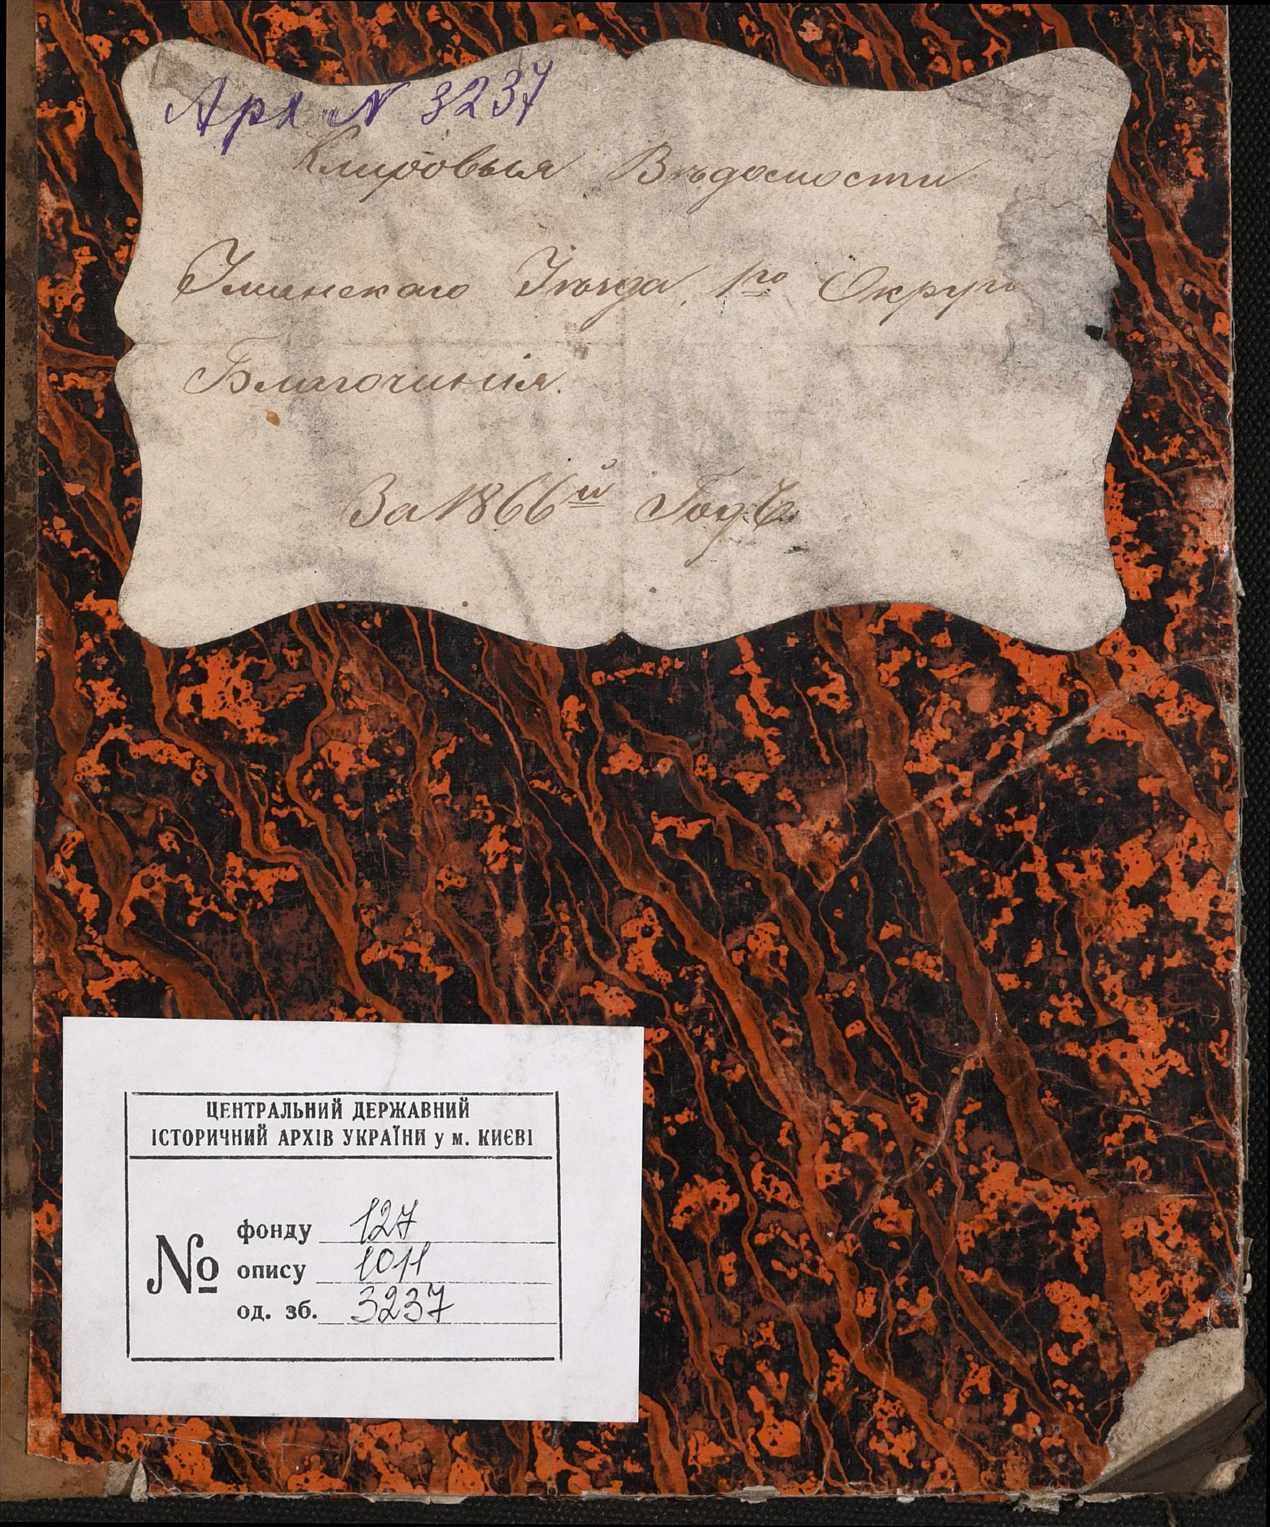 Арх № 3237
Клировыя Вѣдомости
Уманскаго Уѣзда, 1го Округа
Благочинія.
За 1866й Годъ.
ЦЕНТРАЛЬНИЙ ДЕРЖАВНИЙ
ІСТОРИЧНИЙ АРХІВ УКРАЇНИ у м. КИЄВІ
№ фонду 127
опису 1011
од. зб. 3237